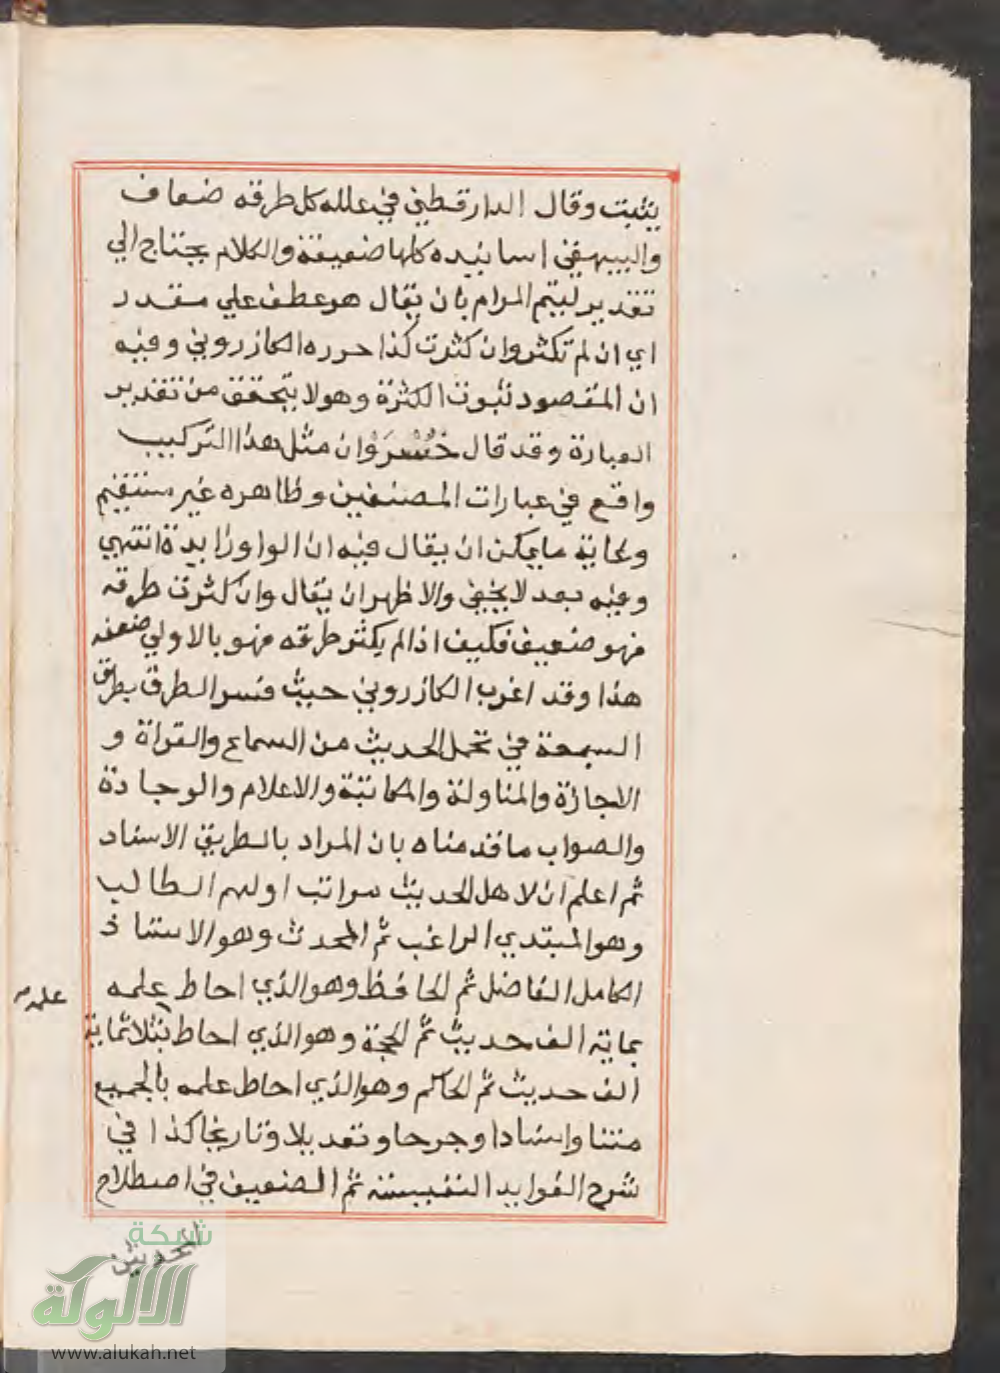 يثبت وقال الدارقطني في علله كل طرقه ضعاف
والبيهقي اسانيده كلها ضعيفة والكلام يحتاج الي
تقدير ليتم المرام بان يقال هو عطف علي مقدر
اي ان لم تكثر وان كثرت كذا حرره الكازروني وفيه
ان المقصود ثبوت الكثرة وهو لا يتحقق من تقدير
العبارة وقد قال خُسْرَوْ ان مثل هذا التركيب
واقع في عبارات المصنفين وظاهره غير مستقيم
وغاية ما يمكن ان يقال فيه ان الواو زايدة انتهي
وفيه بعد لا يخفي والاظهر ان يقال وان كثرت طرقه
فهو ضعيف فكيف اذا لم يكثر طرقه فهو بالاولي ضعفه
هذا وقد اغرب الكازروني حيث فسر الطرق بطرق
السبعة في تحمل الحديث من السماع والقراة و
الاجازة والمناولة والمكاتبة والاعلام والوجادة
والصواب ما قدمناه بان المراد بالطريق الاسناد
ثم اعلم ان لاهل الحديث مراتب اولهم الطالب
وهو المبتدي الراغب ثم المحدث وهو الاستاذ
الكامل الفاضل ثم الحافظ وهو الذي احاط علمه
علمه
بماية الف حديث ثم الحجة وهو الذي احاط بثلاثماية
الف حديث ثم الحاكم وهو الذي احاط علمه بالجميع
متنا واسنادا وجرحا وتعديلا وتاريخا كذا في
شرح الفوايد النفيسة ثم الضعيف في اصطلاح
المحدثين
شبكة
الألوكة
www.alukah.net